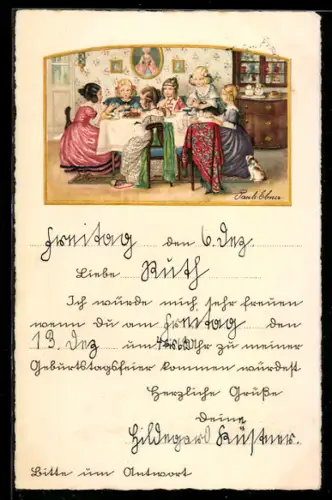 Pauli Ebner
Freitag den 6. Dez.
Liebe Ruth
Ich würde mich sehr freuen
wenn du am Freitag den
13. Dez um Uhr zu meiner
Geburtstagsfeier kommen würdest
Herzliche Grüße
Deine
Hildegard Küstner.
Bitte um Antwort